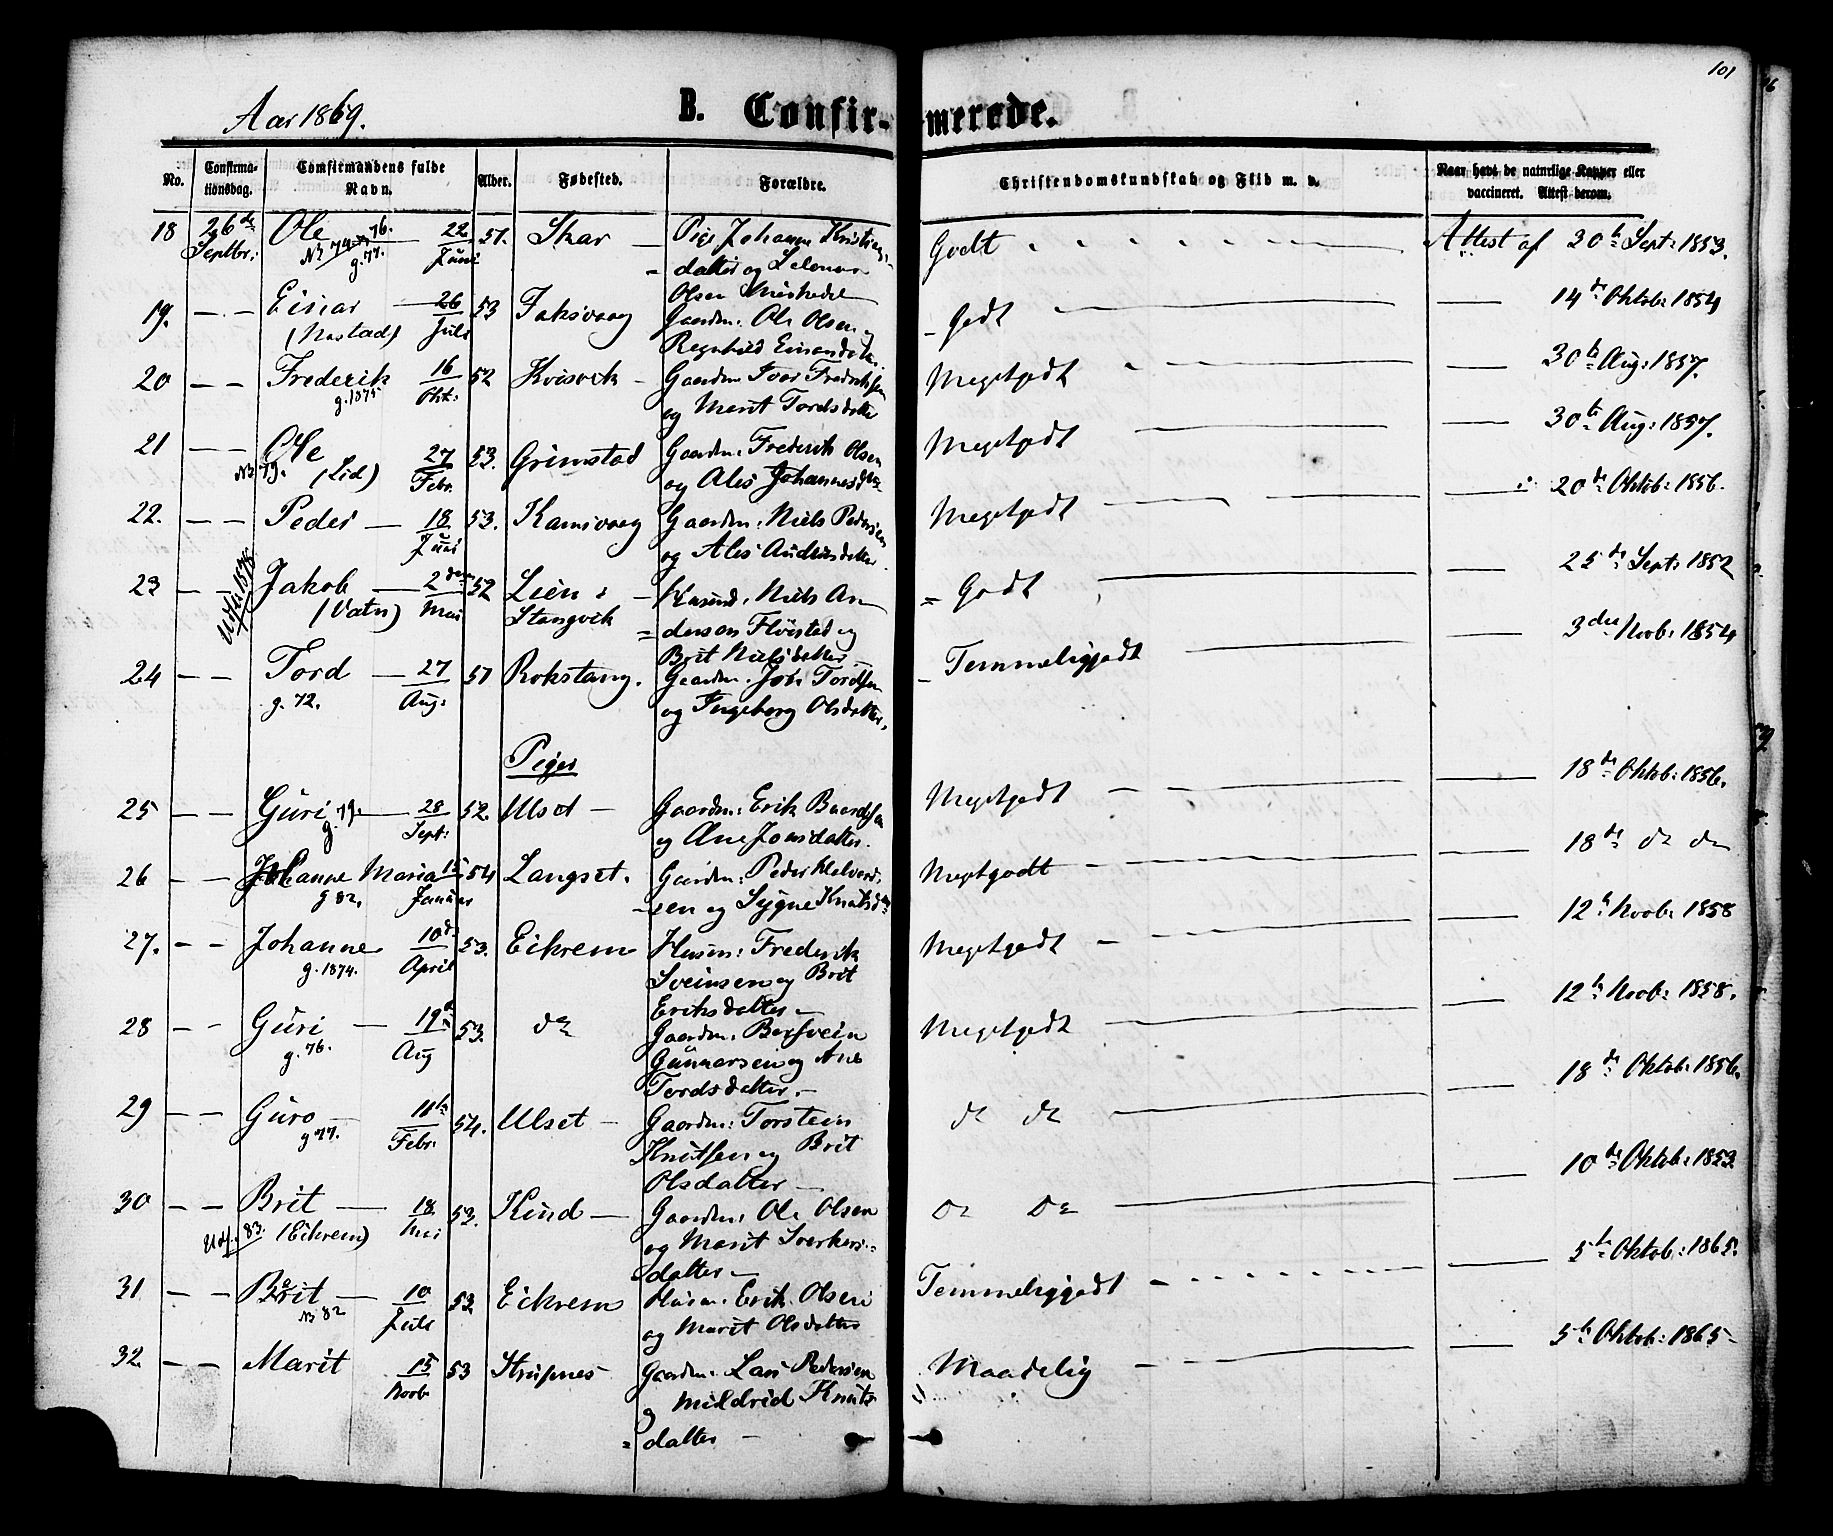 101
Aar 1869.
B. Confir-merede.
No. Confirma-tionsdag. Comfirmandens fulde Navn. Alder. Fødested. Forældre. Christendomskundskab og Flid m. v. Naar havt de naturlige Kopper eller vaccineret. Attest derom.
18 26de Septbr: Ole 22 Juni 51. Skar Pige Johanne Kristians= Godt Attest af 20de Sept: 1853.
g. 77. = datter og
Olsen
19. — — Einar 26 Juli 53 Gaardm: Ole Olsen og - Godt — 14de Oktob: 1854
(Nastad) Regnhild
20 — — Frederik 16 Okt: 52 Kvisvik - Gaardm Ivar Fredriksen Megetgodt — 30te Aug: 1857.
g. 1875 og Marit Tordsdatter
21 — — Ole 27 Febr. 53. Grimstad Gaardm: Frederik Olsen Megetgodt — 30te Aug: 1857.
No 79. (Lid) og Ales Johannesdtr
22. — — Peder — 18 Juni 53. Kamsvaag Gaardm: Niels Pedersen Megetgodt — 20de Oktob: 1856.
og Ales
23 — — Jakob — 2den Mai 52 Lien i - Niels An= = Godt — 25de Sept: 1852
(Vatn) Stangvik = dersen og
Brit Nielsdatter
24 — — Tord — 27 Aug: 51 Rokstang. Gaardm. John Tordsen - Temmeliggodt — 3die Novb: 1854
g. 72. og Ingeborg Olsdatter.
Piger
25 — — Guri 28 Sept: 52. Ulset — Gaardm: Erik Baardsen Megetgodt — 18de Oktob: 1856.
g. 79. og Ane Jonsdatter.
26 — — Johanne Maria 15 Januar 54 Langset. Gaardm: Peder Halvord= Megetgodt — 18de do do
g 82. -sen og Sygne Knutsdtr
27. — — Johanne 10de April 53. Eikrem Husm: Frederik Megetgodt — 12te Novb: 1858
g. 1874. Sveinsen og Brit
Eriksdatter —
28 — — Guri — 19de Aug 53. do Gaardm: Bersvein Megetgodt — 12te Novb: 1858.
g. 76. Gunnarsen og Ane
Tordsdatter. —
29 — — Guro — 11te Febr. 54. Ulset — Gaardm: Torstein do do — 18de Oktob: 1856.
g 77. Knutsen og Brit
Olsdatter —
30 — — Brit — 18 Mai 53. Kund — Gaardm: Ole Olsen do do — 10de Oktob: 1853
Udf. 83. (Eikrem) og Marit Sverkers=
datter —
31 — — Brit — 10 Juli 53. Eikrem Husm. Erik Olsen Temmeliggodt — 5te Oktob: 1865.
No 82 og Marit Olsdatter
32. — — Marit 15 Novb 53 Strupnes - Gaardm: Lars Pedersen Maadelig — 5te Oktob: 1865-
og Mildrid Knuts
= datter —